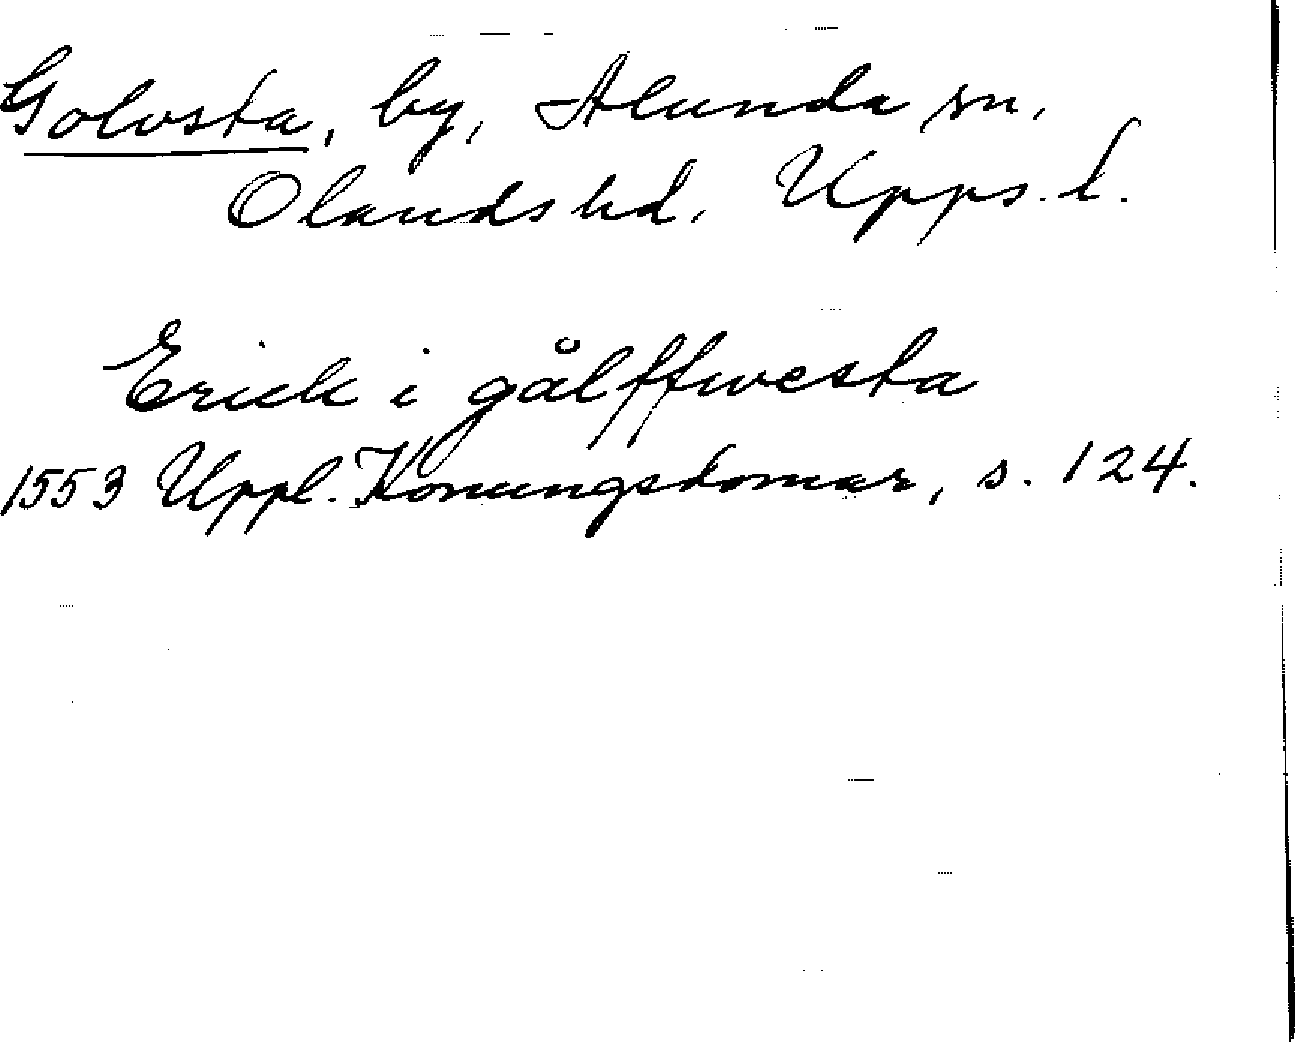 Golvsta, by, Alunda sn,
Olands hd. Upps. l.
Erick i gålffwesta
1553 Uppl. Konungsdomar, s. 124.